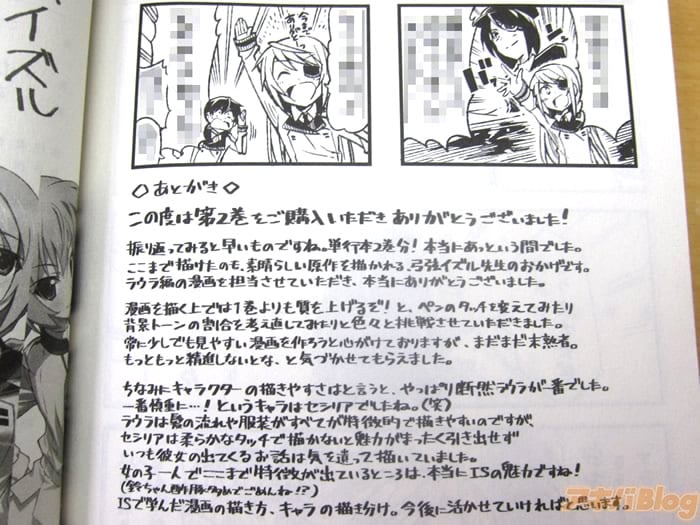 イズル
◇あとがき◇
この度は第2巻をご購入いただきありがとうございました!
振り返ってみると早いものですね。単行本2巻分!本当にあっという間でした。
ここまで描けたのも、素晴らしい原作を描かれる、弓弦イズル先生のおかげです。
ラウラ編の漫画を担当させていただき、本当にありがとうございました。
漫画を描く上では1巻よりも質を上げるぞ!と、ペンのタッチを変えてみたり
背景トーンの割合を考え直してみたりと色々と挑戦させていただきました。
常に少しでも見やすい漫画を作ろうと心がけておりますが、まだまだ未熟者。
もっともっと精進しないとな、と気づかせてもらえました。
ちなみにキャラクターの描きやすさはと言うと、やっぱり断然ラウラが一番でした。
一番慎重に…!というキャラはセシリアでしたね。(笑)
ラウラは髪の流れや服装がすべてが特徴的で描きやすいのですが、
セシリアは柔らかなタッチで描かないと魅力がまったく引き出せず
いつも彼女の出てくるお話は気を遣って描いていました。
女の子一人でここまで特徴が出ているところは、本当にISの魅力ですね!
(鈴ちゃん酢豚ネタでごめんね!?)
ISで学んだ漫画の描き方、キャラの描き分け。今後に活かせていければと思います。
アキバBlog